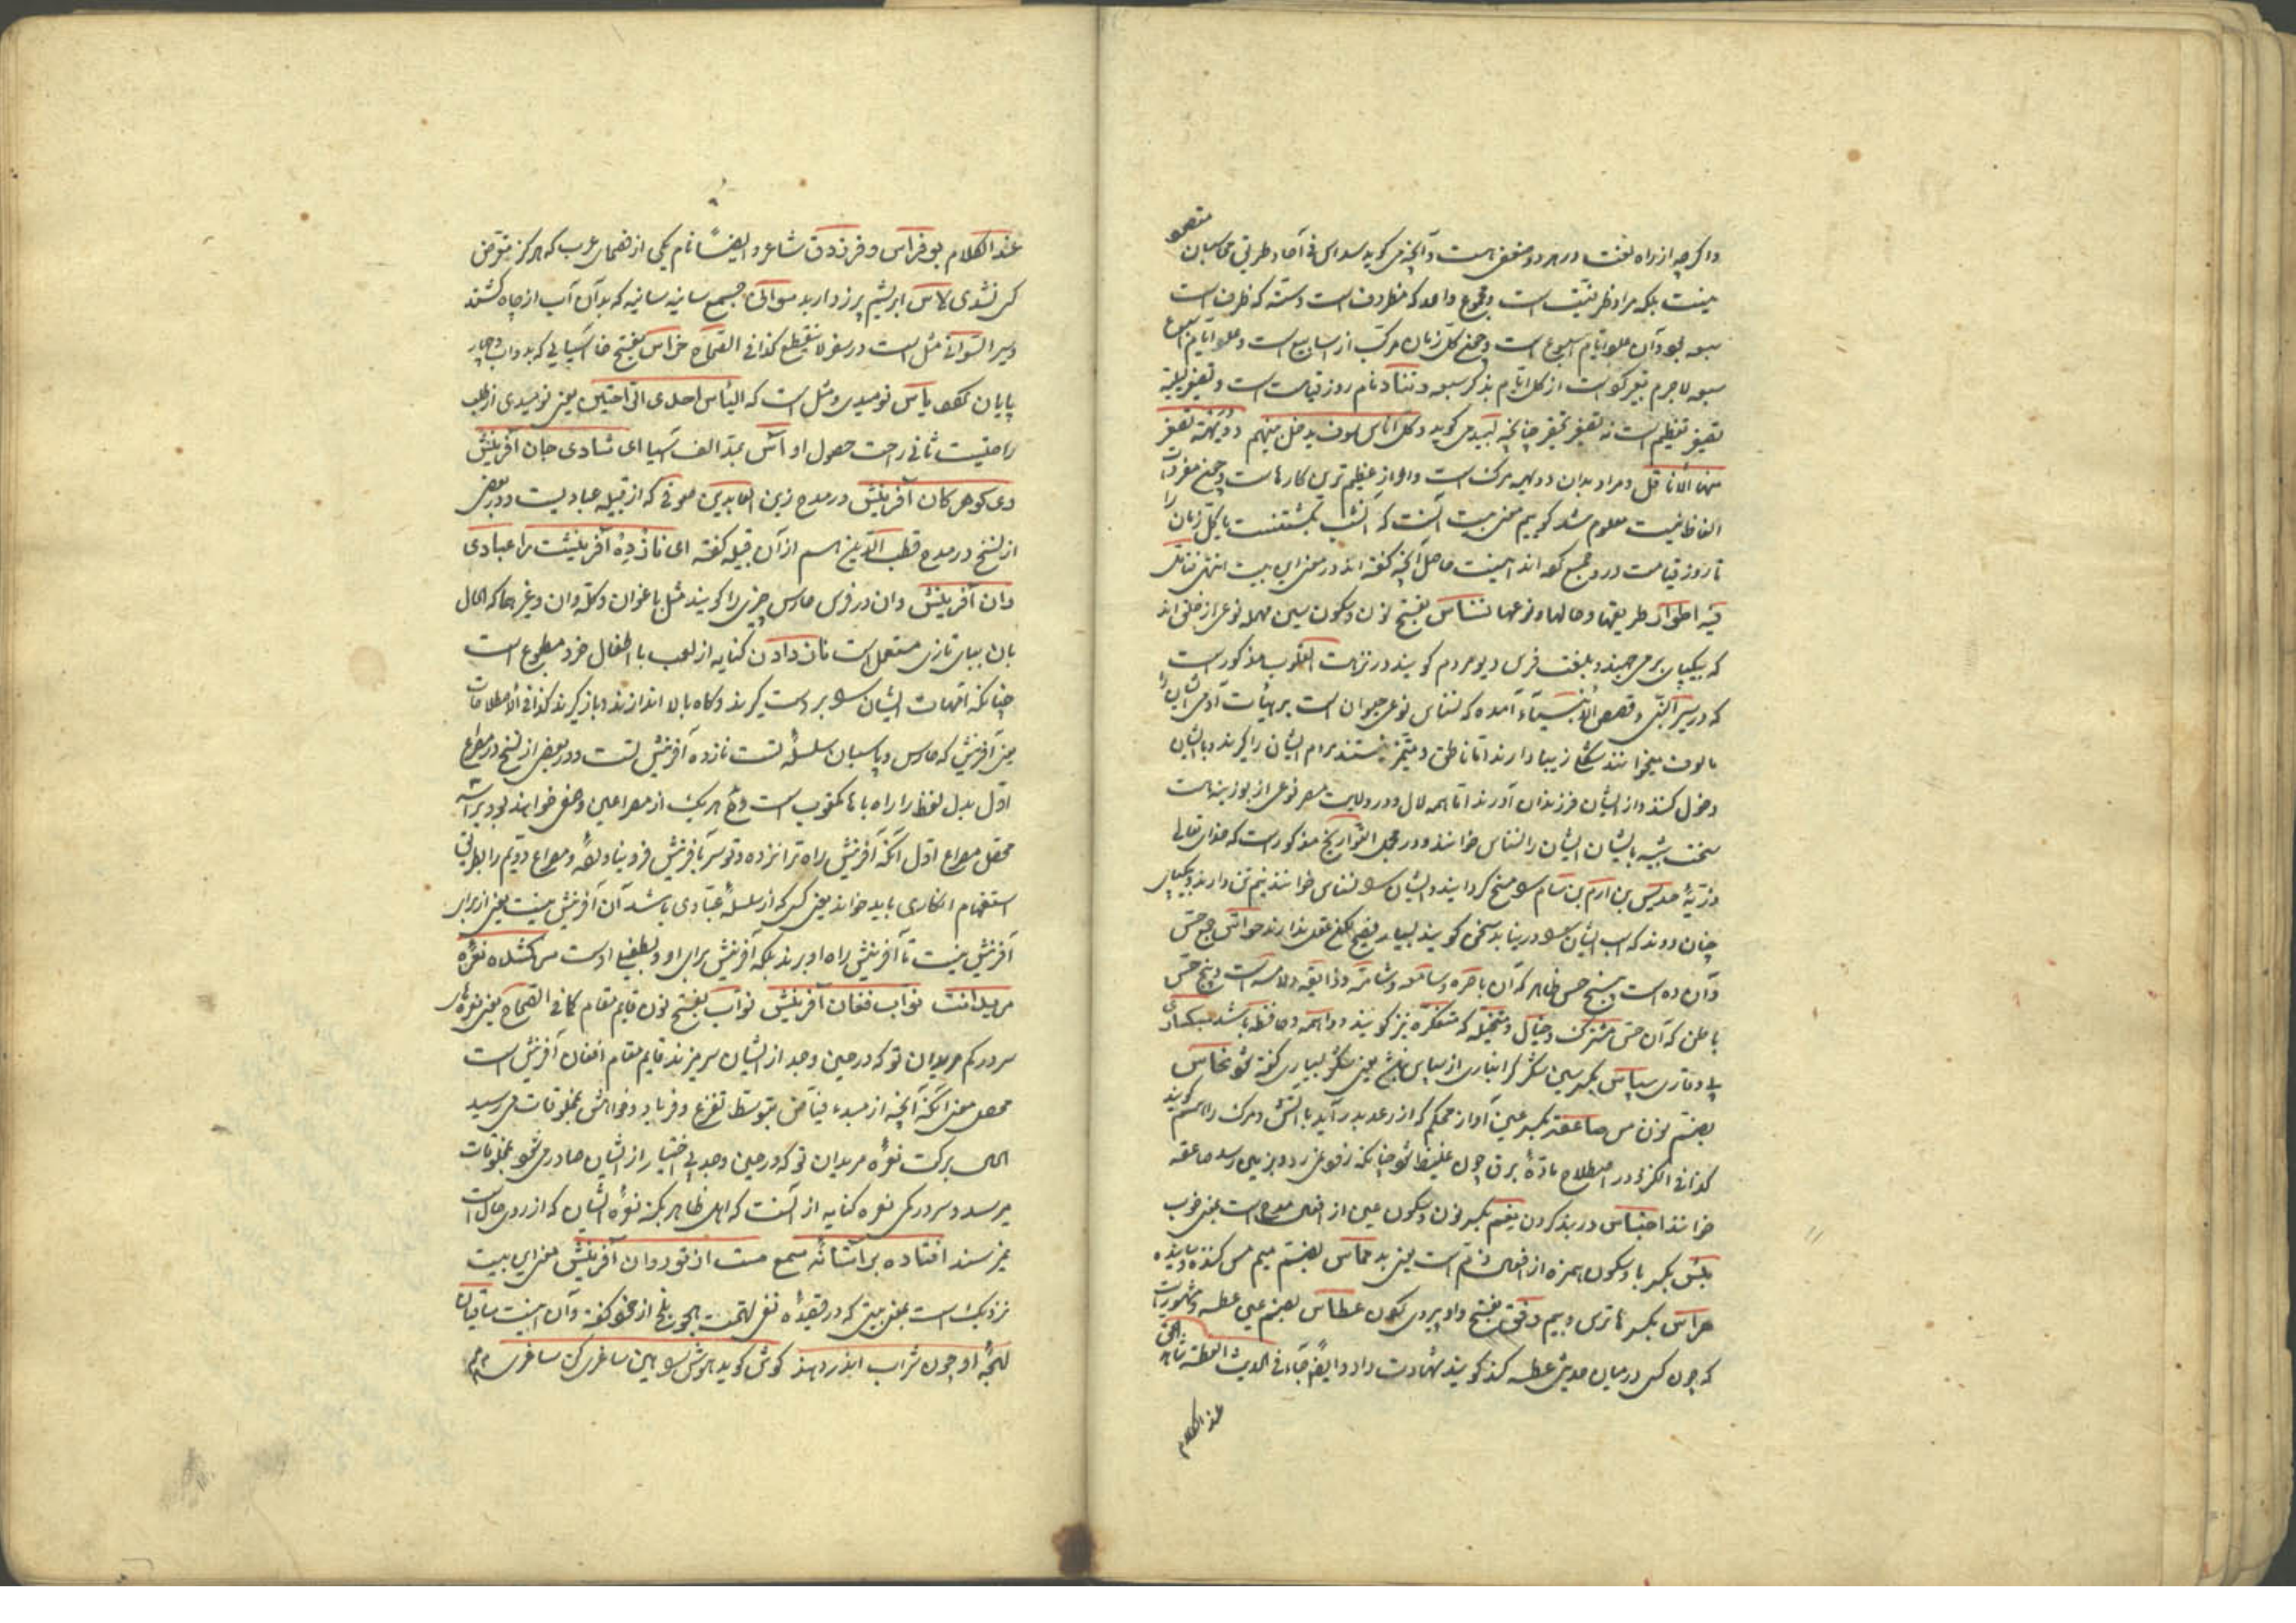 واکرچه از راه لغت در هر دو متفق است و آنچه می کوید سداس فی آحاد طریق محاسبان مقصود
نیست بلکه مراد ظرفیت است و مجموع واحد که مظروف است و ستّه که ظرف است
سبعه بود و آن عدد ایّام اسبوع است و جمع کل زمان مرکب از اسابیع است و عدد ایام اسبوع
سبعه لاجرم تعبیر کرده است از کل ایّام بذکر سبعه و تناد نام روز قیامت است و تصغیر لییلة
تصغیر تعظیم است نه تصغیر تحقیر چنانچه لبید می کوید و کل اناس سوف یدخل بینهم دویهیة تصفر
منها الانامل و مراد بدان دویهیه مرک است و او از عظیم ترین کارهاست و جمیع مفردات
الفاظ بیت معلوم شد کوییم معنی بیت آنست که امشب یکشبست یا کل زمان را
تا روز قیامت در و جمع کرده اند اینست حاصل آنچه کفته اند در معنی این بیت انتهی فتامل
فیه اطوار طریقها و حالها و نوعها نسناس بفتح نون و سکون سین مهمله نوعی از خلق اند
که بیکپای برمی جهند و بلغت فرس دیو مردم کویند در نزهت القلوب مذکور است
که در سیر النبی و قصص الانبیاء آمده که نسناس نوعی حیوان است بر هیأت آدمی ایشان را
مالوف میخوانند شکل زیبا دارند اما ناطق و ممیّز نیستند مردم ایشان را کیرند و با ایشان
دخول کنند و از ایشان فرزندان آورند اما همه لال و در ولایت مصر نوعی از بوزینه است
سخت شبیه بایشان ایشان را نسناس خوانند و در مجمل التواریخ مذکور است که خدای تعالی
ذرّیّهٔ جدیس بن ارم بن سام را مسخ کردانید و ایشان را نسناس خوانند نیم تن دارند و بیکپای
چنان دوند که اسب ایشان را در نیابد سخن کویند بسیار فصیح لکن عقل ندارند حواس جمع حس
و آن ده است پنج حس ظاهر که آن باصره و سامعه و شامّه و ذایقه و لامسه است و پنج حس
باطن که آن حس مشترک و خیال و متخیله که متفکره نیز کویند و واهمه و حافظه باشد سبکساری
بی وقاری سپاس بکسر سین شکر کرانباری از سپاس یعنی شکر بسیاری کفته شود نحاس
بضم نون مس صاعقه بکسر عین آواز محکم که از رعد بدر آید با آتش و مرک را هم کویند
کذا فی الکنز و در اصطلاح مادّهٔ برق چون غلیظ شود چنانکه زود نمیرد و بزمین رسد صاعقه
خوانند احتباس در بند کردن نعم بکسر نون و سکون عین از افعال مدح است یعنی خوب
بئس بکسر با و سکون همزه از افعال ذم است یعنی بد مماس بضم میم مس کننده
هراس بکسر ها ترس و بیم وقع بفتح واو پروی کون عطاس بضم عین عطسه و مشهور است
که چون کسی در میان حدیثی عطسه کند کویند شهادت داد و ایضا جاء فی الحدیث العطسة شاهد الحق
عند الکلام
عند الکلام بوفراس و فرزدق شاعر و ایضاً نام یکی از فصحای عرب که هرکز متعرض
کس نشدی لاس ابریشم پرز دارید سوانی جمع سانیه سانیه که بدان آب از چاه کشند
و سیر السوانی مثل است در سفر لا ینقطع کذا فی الصحاح خراس بفتح خا آسیایی که بدواب و چار
پایان کردد یاس نومیدی و مثل است که الیاس احدی الراحتین یعنی نومیدی از طلب
راحتیست ثانی راحت حصول او آس بمدّ الف آسیا ای شادی جان آفرینش
وی کوهر کان آفرینش در مدح زین العابدین صوفی که از قبیله عبادیست و در بعضی
از نسخ در مدح قطب الدین اسم از آن قبیله کفته ای نازده آفرینشت را عبادی
دان آفرینش وان در فرس حارس چیزی را کویند مثل باغوان و کله وان و غیرهما که الحال
بان ببای تازی مستعمل است نان دادن کنایه از لعب با اطفال خرد مطبوع است
چنانکه امهات ایشان را بر دست کیرند و کاه بالا اندازند و باز کیرند کذا فی الاصطلاحات
یعنی آفرینش که حارس و پاسبان سلسله تست نازده آفرینش تست و در بعضی از نسخ در مصراع
اول بدل لفظ را راه با ها مکتوب است و هر یک از مصراعین وصفی خواهند بود براسه
محصل مصراع اول آنکه آفرینش راه ترا نزده و تو سر بآفرینش فرو نیاورده و مصراع دویم را بطریق
استفهام انکاری باید خواند یعنی کسی که از سلسلهٔ عبّادی باشد آن آفرینش نیست یعنی از برای
آفرینش نیست تا آفرینش راه او برند بلکه آفرینش برای او و بطفیل اوست سرکشده نعرهٔ
مریدانت نواب فغان آفرینش نواب بفتح نون قایم مقام کما فی الصحاح یعنی نعره های
سر در کم مریدان تو که در حین وجد از ایشان سر میزند قایم مقام افغان آفرینش است
محصل معنی آنکه آنچه از مبدء فیاض بتوسط تضرع و فریاد و خواهش بمخلوقات می رسید
الحال ببرکت نعرهٔ مریدان تو که در حین وجد بی اختیار از ایشان صادر می شود بمخلوقات
میرسد و سر در کمی نعره کنایه از آنست که اهل ظاهر بکنه نعرهٔ ایشان که از روی حال است
نمیرسند افتاده بر آستانهٔ سمع مست از تو روان آفرینش معنی این بیت
نزدیک است بمعنی بیتی که در قصیدهٔ نفی تهمت هجو بلخ از خود کفته و آن اینست ساقیان
لهجهٔ او چون شراب اندر دهند کوش کوید هوش را هین ساغری کن ساغری